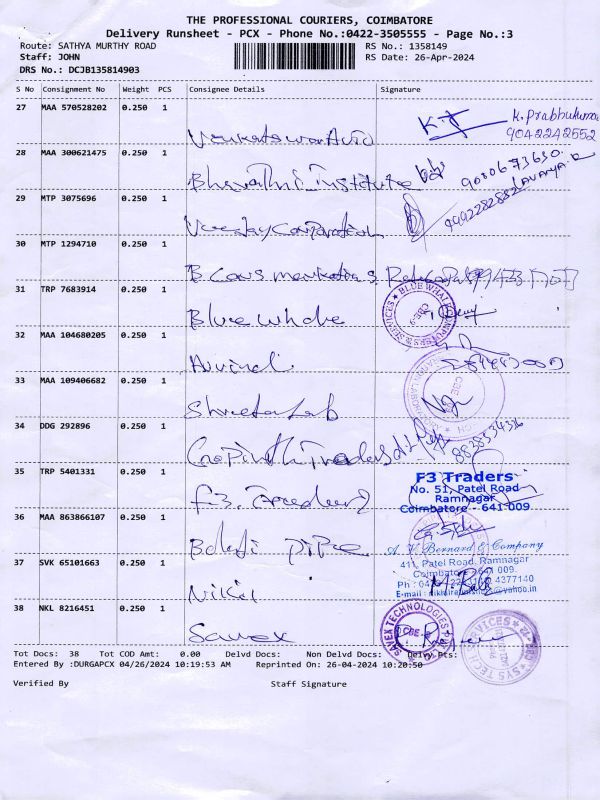 THE PROFESSIONAL COURIERS, COIMBATORE
Delivery Runsheet - PCX - Phone No.:0422-3505555 - Page No.:3
Route: SATHYA MURTHY ROAD RS No.: 1358149
Staff; JOHN RS Date: 26-Apr-2024
DRS No.: DCJB135814903
S No Consignment No Weight PCS Consignee Details Signature
27 MAA 570528202 0.250 1
K. Prabhukumar
9042242552
28 MAA 300621475 0.250 1
Bharathi institute
29 MTP 3075696 0.250 1
Veejay Corporation
30 MTP 1294710 0.250 1
31 TRP 7683914 0.250 1
Blue whale
32 MAA 104680205 0.250 1
Arvind
33 MAA 109406682 0.250 1
Shreeta Lab
34 DDG 292896 0.250 1
Gopinath Traders
8838534336
35 TRP 5401331 0.250 1
F3
F3 Traders
No. 51, Patel Road
Ramnagar
Coimbatore - 641 009
36 MAA 863866107 0.250 1
Balaji pipe
A. V. Bernard & Company
37 SVK 65101663 0.250 1
411, Patel Road, Ramnagar
Coimbatore - 641 009.
4377140
Nikil
38 NKL 8216451 0.250 1
Sanex
SANEX TECHNOLOGIES
Tot Docs: 38 Tot COD Amt: 0.00 Delvd Docs: Non Delvd Docs: Delvy Pts:
Entered By :DURGAPCX 04/26/2024 10:19:53 AM Reprinted On: 26-04-2024 10:20:50
Verified By Staff Signature